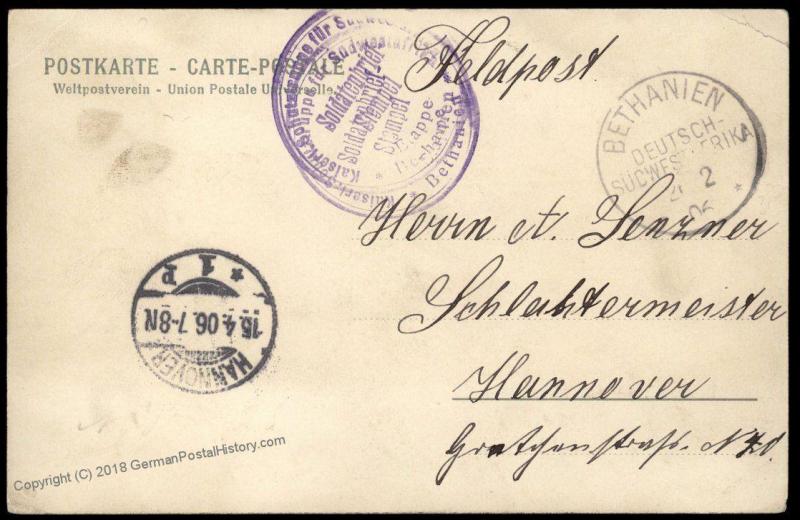 POSTKARTE - CARTE-POSTALE
Weltpostverein - Union Postale Universelle.
Feldpost.
Kaiserl. Schutztruppe für Südwestafrika
Soldatenbrief
Stempel
Etappe
* Bethanien *
BETHANIEN
DEUTSCH-
SÜDWESTAFRIKA
2
06
Herrn A. Senzner
Schlachtermeister
Hannover
Gretchenstraße. N
* 1 P
15.4.06.7-8N
HANNOVER
Copyright (C) 2018 GermanPostalHistory.com